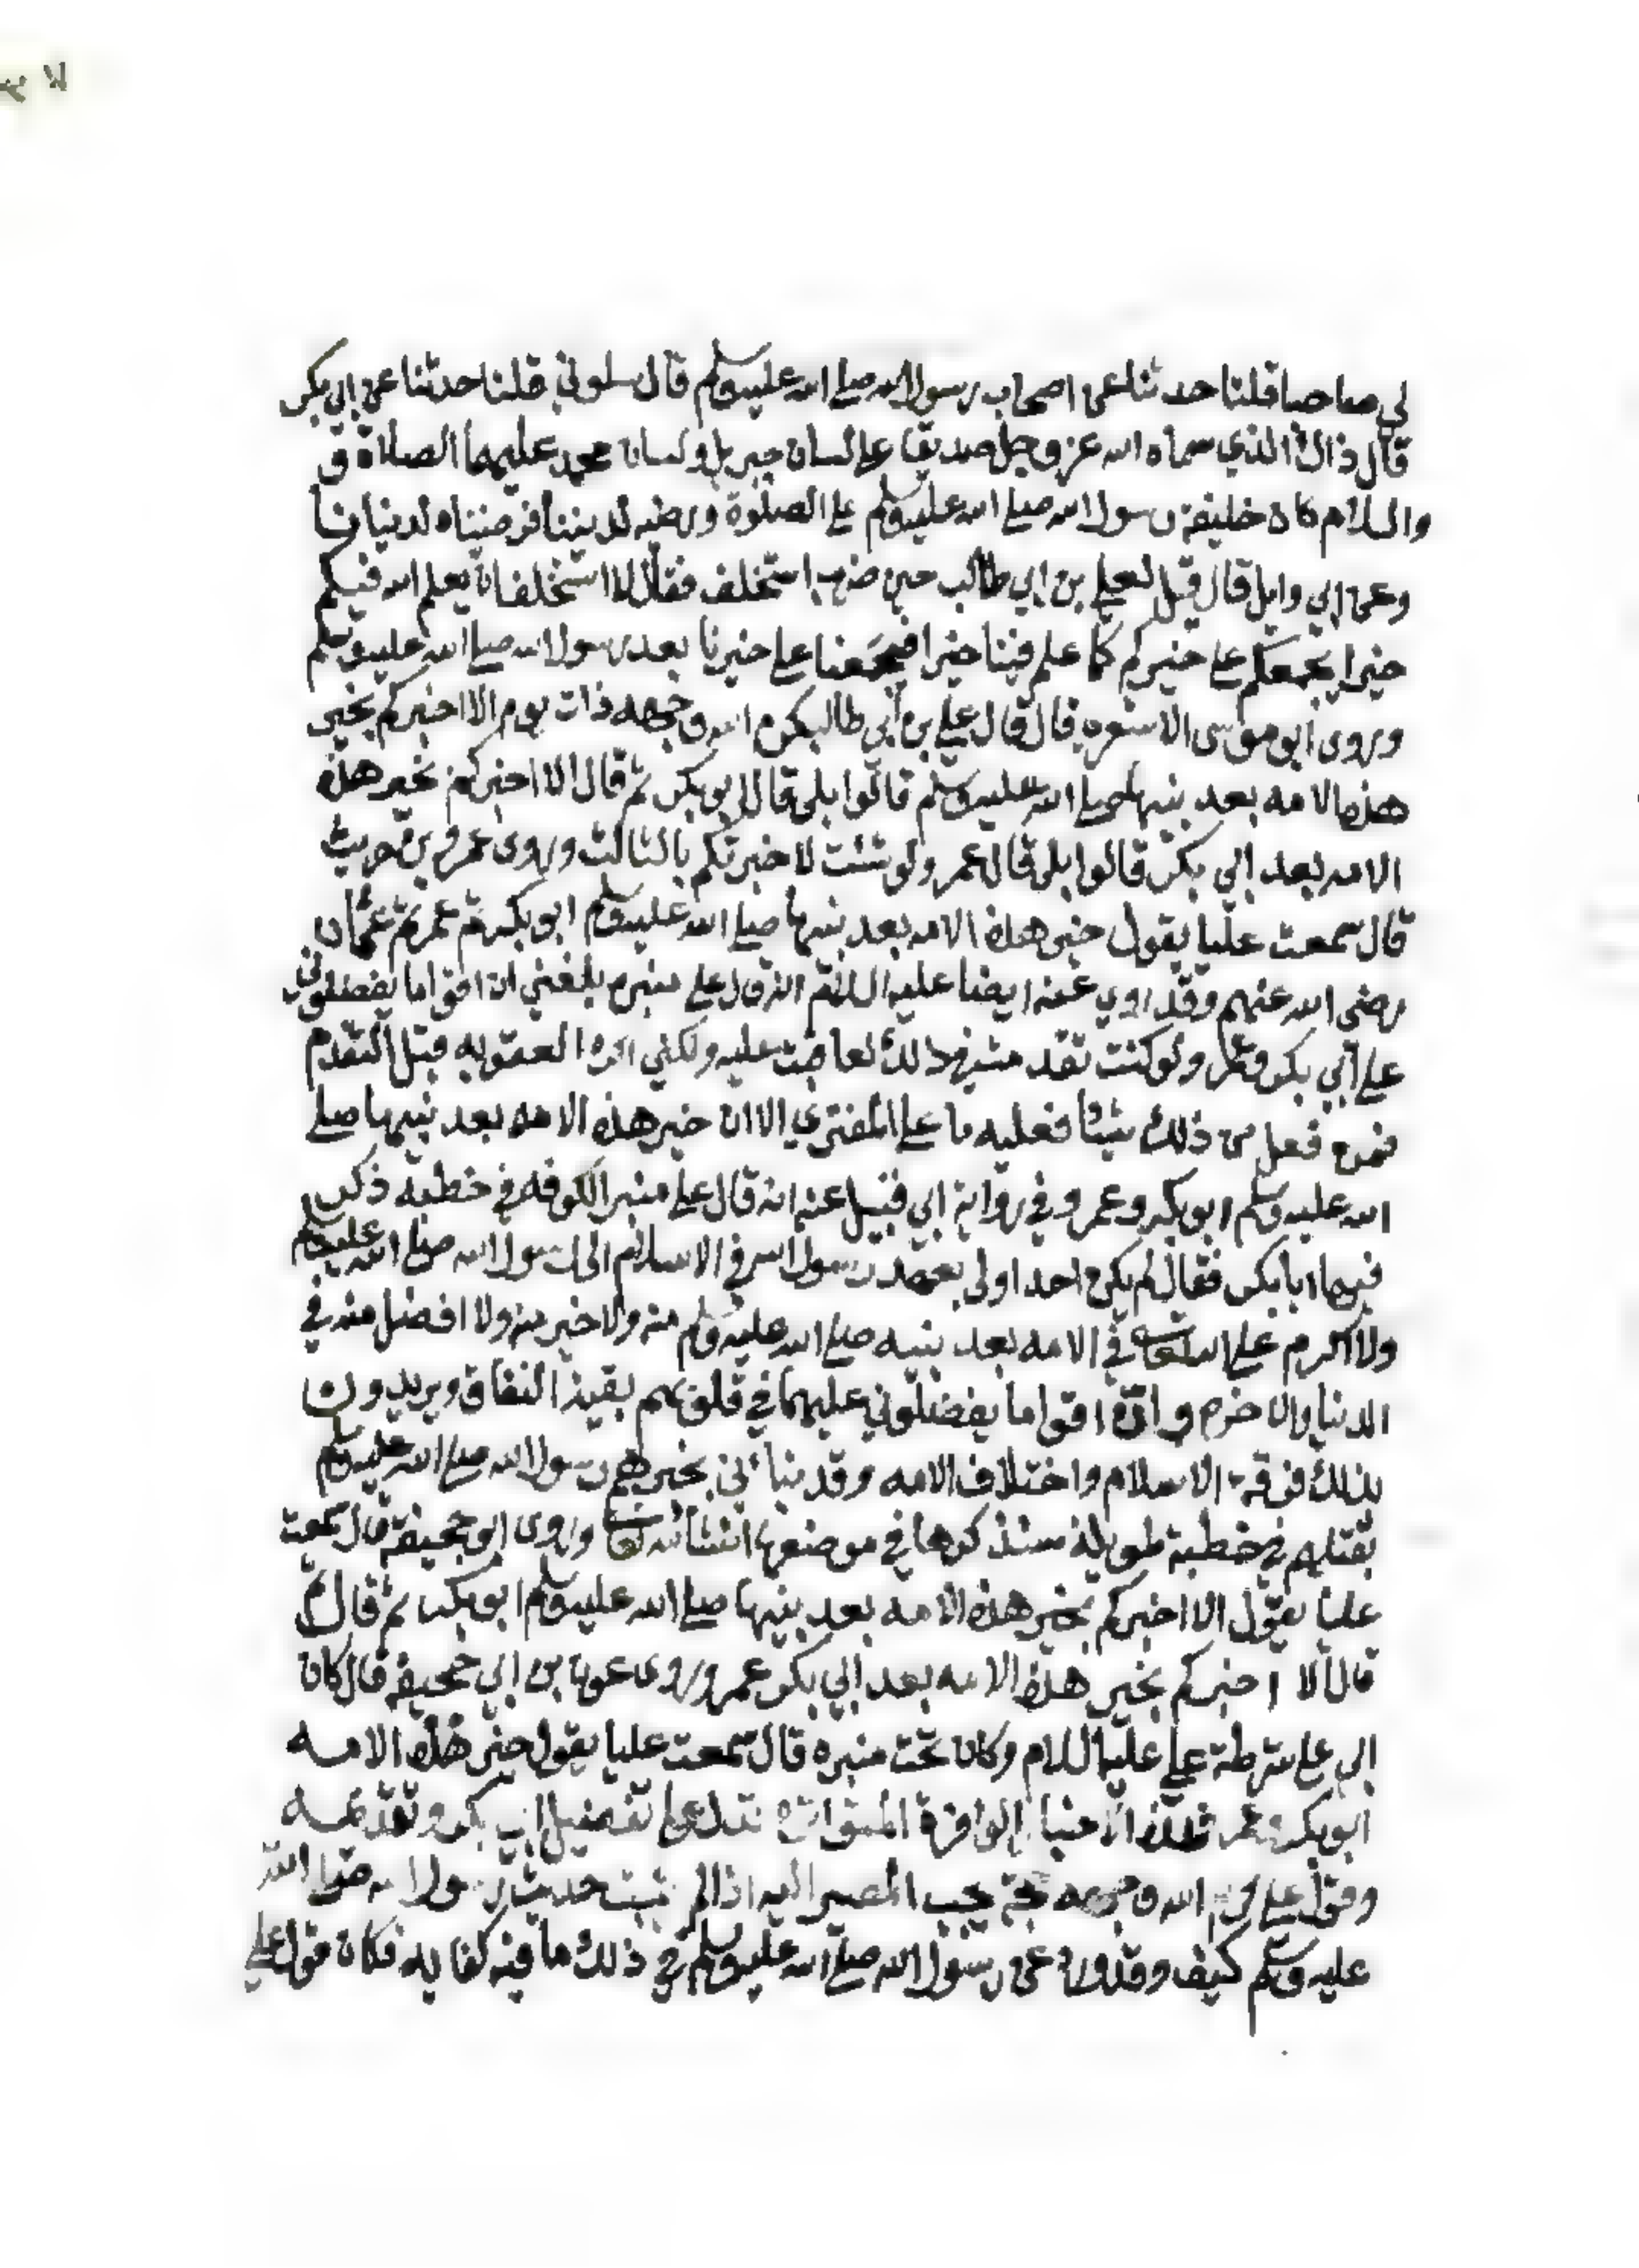 لا
لي صاحبا قلنا حدثنا عن اصحاب رسول الله صلى الله عليه وسلم قال سلوني قلنا حدثنا عن ابي بكر
قال ذاك الذي سماه الله عز وجل صديقا على لسان جبريل ولسان محمد عليهما الصلاة و
والسلام كان خليفة رسول الله صلى الله عليه وسلم على الصلوة ورضيه لديننا فرضيناه لدنيانا
وعن ابي وايل قال قيل لعلي بن ابي طالب حين ضرب استخلف فقال لا استخلف ان يعلم الله فيكم
خيرا يجمعكم على خيركم كما علم فينا خيرا فجمعنا على خيرنا بعد رسول الله صلى الله عليه وسلم
وروى ابو موسى الاشعري قال قال علي بن ابي طالب كرم الله وجهه ذات يوم الا اخبركم بخير
هذه الامه بعد نبيها صلى الله عليه وسلم قالوا بلى قال ابو بكر ثم قال الا اخبركم بخير هذه
الامه بعد ابي بكر قالوا بلى قال عمر ولو شئت لاخبرتكم بالثالث وروى عمرو بن حريث
قال سمعت عليا يقول خير هذه الامه بعد نبيها صلى الله عليه وسلم ابو بكر ثم عمر ثم عثمان
رضي الله عنهم وقد روي عنه ايضا عليه السلام انه قال على منبره بلغني ان اقواما يفضلوني
على ابي بكر وعمر ولو كنت تقدمت في ذلك لعاقبت عليه ولكني اكره العقوبه قبل التقدم
فمن فعل من ذلك شيئا فعليه ما على المفتري الا ان خير هذه الامه بعد نبيها صلى
الله عليه وسلم ابو بكر وعمر وفي رواية ابي قبيل عنه انه قال على منبر الكوفه في خطبه ذكر
فيها ابا بكر فقال لم يكن احد اولى بعهد رسول الله في الاسلام الى رسول الله صلى الله عليه وسلم
ولا اكرم على الله تعالى في الامه بعد نبيه صلى الله عليه وسلم منه ولا خير منه ولا افضل منه في
الدنيا والاخره وان اقواما يفضلوني عليهما في قلوبهم بقية النفاق ويريدون
بذلك فرقة الاسلام واختلاف الامه وقد نباني بخبرهم رسول الله صلى الله عليه وسلم
بقتلهم في خطبة طويلة سنذكرها في موضعها ان شا الله تعالى وروى ابو جحيفة قال سمعت
عليا يقول الا اخبركم بخير هذه الامه بعد نبيها صلى الله عليه وسلم ابو بكر ثم قال
قال الا اخبركم بخير هذه الامه بعد ابي بكر عمر وروى عون بن ابي جحيفة قال كان
ابي على شرطة علي عليه السلام وكان تحت منبره قال سمعت عليا يقول خير هذه الامه
ابو بكر وعمر فهذه الاخبار الوافرة المتواترة تدل على تفضيل ابي بكر وتقديمه
وقول علي كرم الله وجهه حجة يجب المصير اليه اذا لم يثبت حديث رسول الله صلى الله
عليه وسلم كيف وقد ورد عن رسول الله صلى الله عليه وسلم في ذلك ما فيه كفايه فكان قول علي